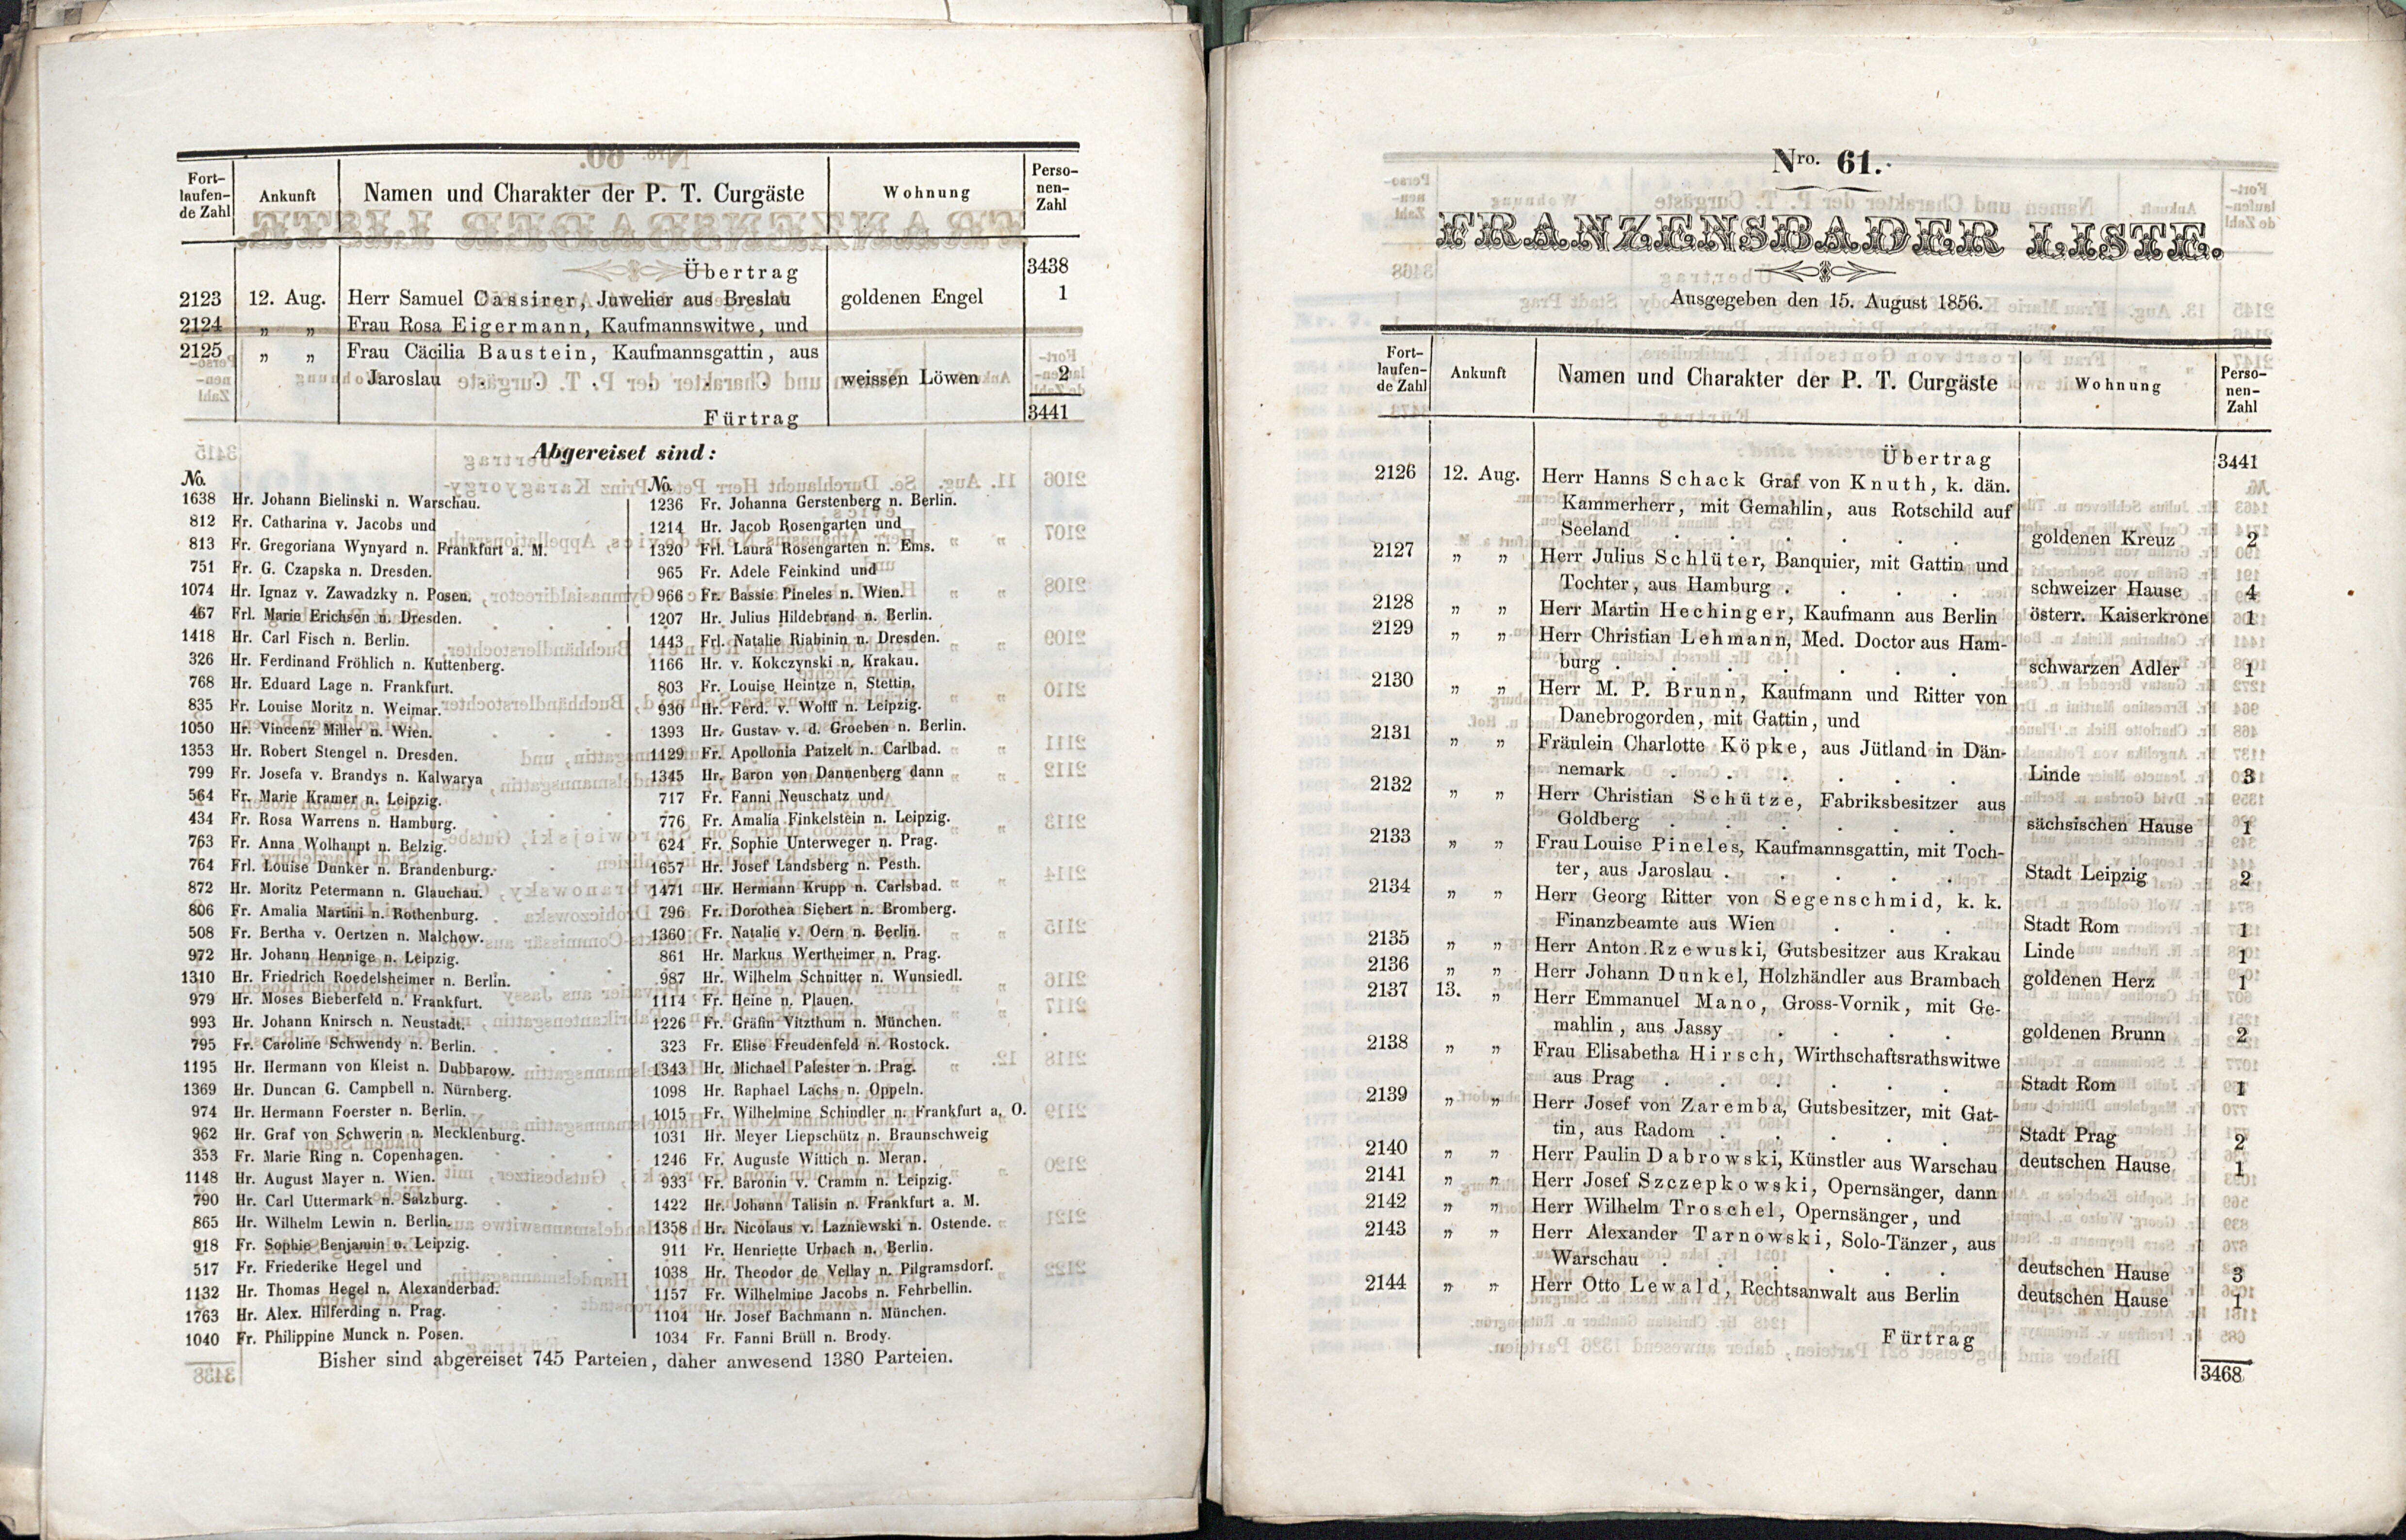 Fort-
laufen-
de Zahl
Ankunft
Namen und Charakter der P. T. Curgäste
Wohnung
Perso-
nen-
Zahl
Übertrag 3438
2123 12. Aug. Herr Samuel Cassirer, Juwelier aus Breslau goldenen Engel 1
2124 „ „ Frau Rosa Eigermann, Kaufmannswitwe, und
2125 „ „ Frau Cäcilia Baustein, Kaufmannsgattin, aus
Jaroslau . . . . . . weissen Löwen 2
Fürtrag 3441
Abgereiset sind:
No.
1638 Hr. Johann Bielinski n. Warschau.
812 Fr. Catharina v. Jacobs und
813 Fr. Gregoriana Wynyard n. Frankfurt a. M.
751 Fr. G. Czapska n. Dresden.
1074 Hr. Ignaz v. Zawadzky n. Posen.
467 Frl. Marie Erichsen n. Dresden.
1418 Hr. Carl Fisch n. Berlin.
326 Hr. Ferdinand Fröhlich n. Kuttenberg.
768 Hr. Eduard Lage n. Frankfurt.
835 Fr. Louise Moritz n. Weimar.
1050 Hr. Vincenz Miller n. Wien.
1353 Hr. Robert Stengel n. Dresden.
799 Fr. Josefa v. Brandys n. Kalwarya
564 Fr. Marie Kramer n. Leipzig.
434 Fr. Rosa Warrens n. Hamburg.
763 Fr. Anna Wolhaupt n. Belzig.
764 Frl. Louise Dunker n. Brandenburg.
872 Hr. Moritz Petermann n. Glauchau.
806 Fr. Amalia Martini n. Rothenburg.
508 Fr. Bertha v. Oertzen n. Malchow.
972 Hr. Johann Hennige n. Leipzig.
1310 Hr. Friedrich Roedelsheimer n. Berlin.
979 Hr. Moses Bieberfeld n. Frankfurt.
993 Hr. Johann Knirsch n. Neustadt.
795 Fr. Caroline Schwendy n. Berlin.
1195 Hr. Hermann von Kleist n. Dubbarow.
1369 Hr. Duncan G. Campbell n. Nürnberg.
974 Hr. Hermann Foerster n. Berlin.
962 Hr. Graf von Schwerin n. Mecklenburg.
353 Fr. Marie Ring n. Copenhagen.
1148 Hr. August Mayer n. Wien.
790 Hr. Carl Uttermark n. Salzburg.
865 Hr. Wilhelm Lewin n. Berlin.
918 Fr. Sophie Benjamin n. Leipzig.
517 Fr. Friederike Hegel und
1132 Hr. Thomas Hegel n. Alexanderbad.
1763 Hr. Alex. Hilferding n. Prag.
1040 Fr. Philippine Munck n. Posen.
No.
1236 Fr. Johanna Gerstenberg n. Berlin.
1214 Hr. Jacob Rosengarten und
1320 Frl. Laura Rosengarten n. Ems.
965 Fr. Adele Feinkind und
966 Fr. Bassie Pineles n. Wien.
1207 Hr. Julius Hildebrand n. Berlin.
1443 Frl. Natalie Riabinin n. Dresden.
1166 Hr. v. Kokczynski n. Krakau.
803 Fr. Louise Heintze n. Stettin.
930 Hr. Ferd. v. Wolff n. Leipzig.
1393 Hr. Gustav v. d. Groeben n. Berlin.
1129 Fr. Apollonia Patzelt n. Carlbad.
1345 Hr. Baron von Dannenberg dann
717 Fr. Fanni Neuschatz und
776 Fr. Amalia Finkelstein n. Leipzig.
624 Fr. Sophie Unterweger n. Prag.
1657 Hr. Josef Landsberg n. Pesth.
1471 Hr. Hermann Krupp n. Carlsbad.
796 Fr. Dorothea Siebert n. Bromberg.
1360 Fr. Natalie v. Oern n. Berlin.
861 Hr. Markus Wertheimer n. Prag.
987 Hr. Wilhelm Schnitter n. Wunsiedl.
1114 Fr. Heine n. Plauen.
1226 Fr. Gräfin Vitzthum n. München.
323 Fr. Elise Freudenfeld n. Rostock.
1343 Hr. Michael Palester n. Prag.
1098 Hr. Raphael Lachs n. Oppeln.
1015 Fr. Wilhelmine Schindler n. Frankfurt a. O.
1031 Hr. Meyer Liepschütz n. Braunschweig
1246 Fr. Auguste Wittich n. Meran.
933 Fr. Baronin v. Cramm n. Leipzig.
1422 Hr. Johann Talisin n. Frankfurt a. M.
1358 Hr. Nicolaus v. Lazniewski n. Ostende.
911 Fr. Henriette Urbach n. Berlin.
1038 Hr. Theodor de Vellay n. Pilgramsdorf.
1157 Fr. Wilhelmine Jacobs n. Fehrbellin.
1104 Hr. Josef Bachmann n. München.
1034 Fr. Fanni Brüll n. Brody.
Bisher sind abgereiset 745 Parteien, daher anwesend 1380 Parteien.
Nro. 61.
FRANZENSBADER LISTE.
Ausgegeben den 15. August 1856.
Fort-
laufen-
de Zahl
Ankunft
Namen und Charakter der P. T. Curgäste
Wohnung
Perso-
nen-
Zahl
Übertrag 3441
2126 12. Aug. Herr Hanns Schack Graf von Knuth, k. dän.
Kammerherr, mit Gemahlin, aus Rotschild auf
Seeland . . . . . . goldenen Kreuz 2
2127 „ „ Herr Julius Schlüter, Banquier, mit Gattin und
Tochter, aus Hamburg . . . . schweizer Hause 4
2128 „ „ Herr Martin Hechinger, Kaufmann aus Berlin österr. Kaiserkrone 1
2129 „ „ Herr Christian Lehmann, Med. Doctor aus Ham-
burg . . . . . . schwarzen Adler 1
2130 „ „ Herr M. P. Brunn, Kaufmann und Ritter von
Danebrogorden, mit Gattin, und
2131 „ „ Fräulein Charlotte Köpke, aus Jütland in Dän-
nemark . . . . . . Linde 3
2132 „ „ Herr Christian Schütze, Fabriksbesitzer aus
Goldberg . . . . . . sächsischen Hause 1
2133 „ „ Frau Louise Pineles, Kaufmannsgattin, mit Toch-
ter, aus Jaroslau . . . . . Stadt Leipzig 2
2134 „ „ Herr Georg Ritter von Segenschmid, k. k.
Finanzbeamte aus Wien . . . Stadt Rom 1
2135 „ „ Herr Anton Rzewuski, Gutsbesitzer aus Krakau Linde 1
2136 „ „ Herr Johann Dunkel, Holzhändler aus Brambach goldenen Herz 1
2137 13. „ Herr Emmanuel Mano, Gross-Vornik, mit Ge-
mahlin, aus Jassy . . . . goldenen Brunn 2
2138 „ „ Frau Elisabetha Hirsch, Wirthschaftsrathswitwe
aus Prag . . . . . . Stadt Rom 1
2139 „ „ Herr Josef von Zaremba, Gutsbesitzer, mit Gat-
tin, aus Radom . . . . . Stadt Prag 2
2140 „ „ Herr Paulin Dabrowski, Künstler aus Warschau deutschen Hause 1
2141 „ „ Herr Josef Szczepkowski, Opernsänger, dann
2142 „ „ Herr Wilhelm Troschel, Opernsänger, und
2143 „ „ Herr Alexander Tarnowski, Solo-Tänzer, aus
Warschau . . . . . . deutschen Hause 3
2144 „ „ Herr Otto Lewald, Rechtsanwalt aus Berlin deutschen Hause 1
Fürtrag
3468